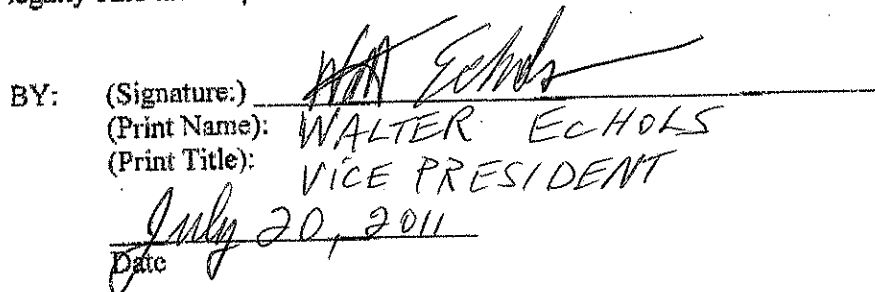 BY: (Signature:) Walt Echols
(Print Name): WALTER ECHOLS
(Print Title): VICE PRESIDENT
July 20, 2011
Date